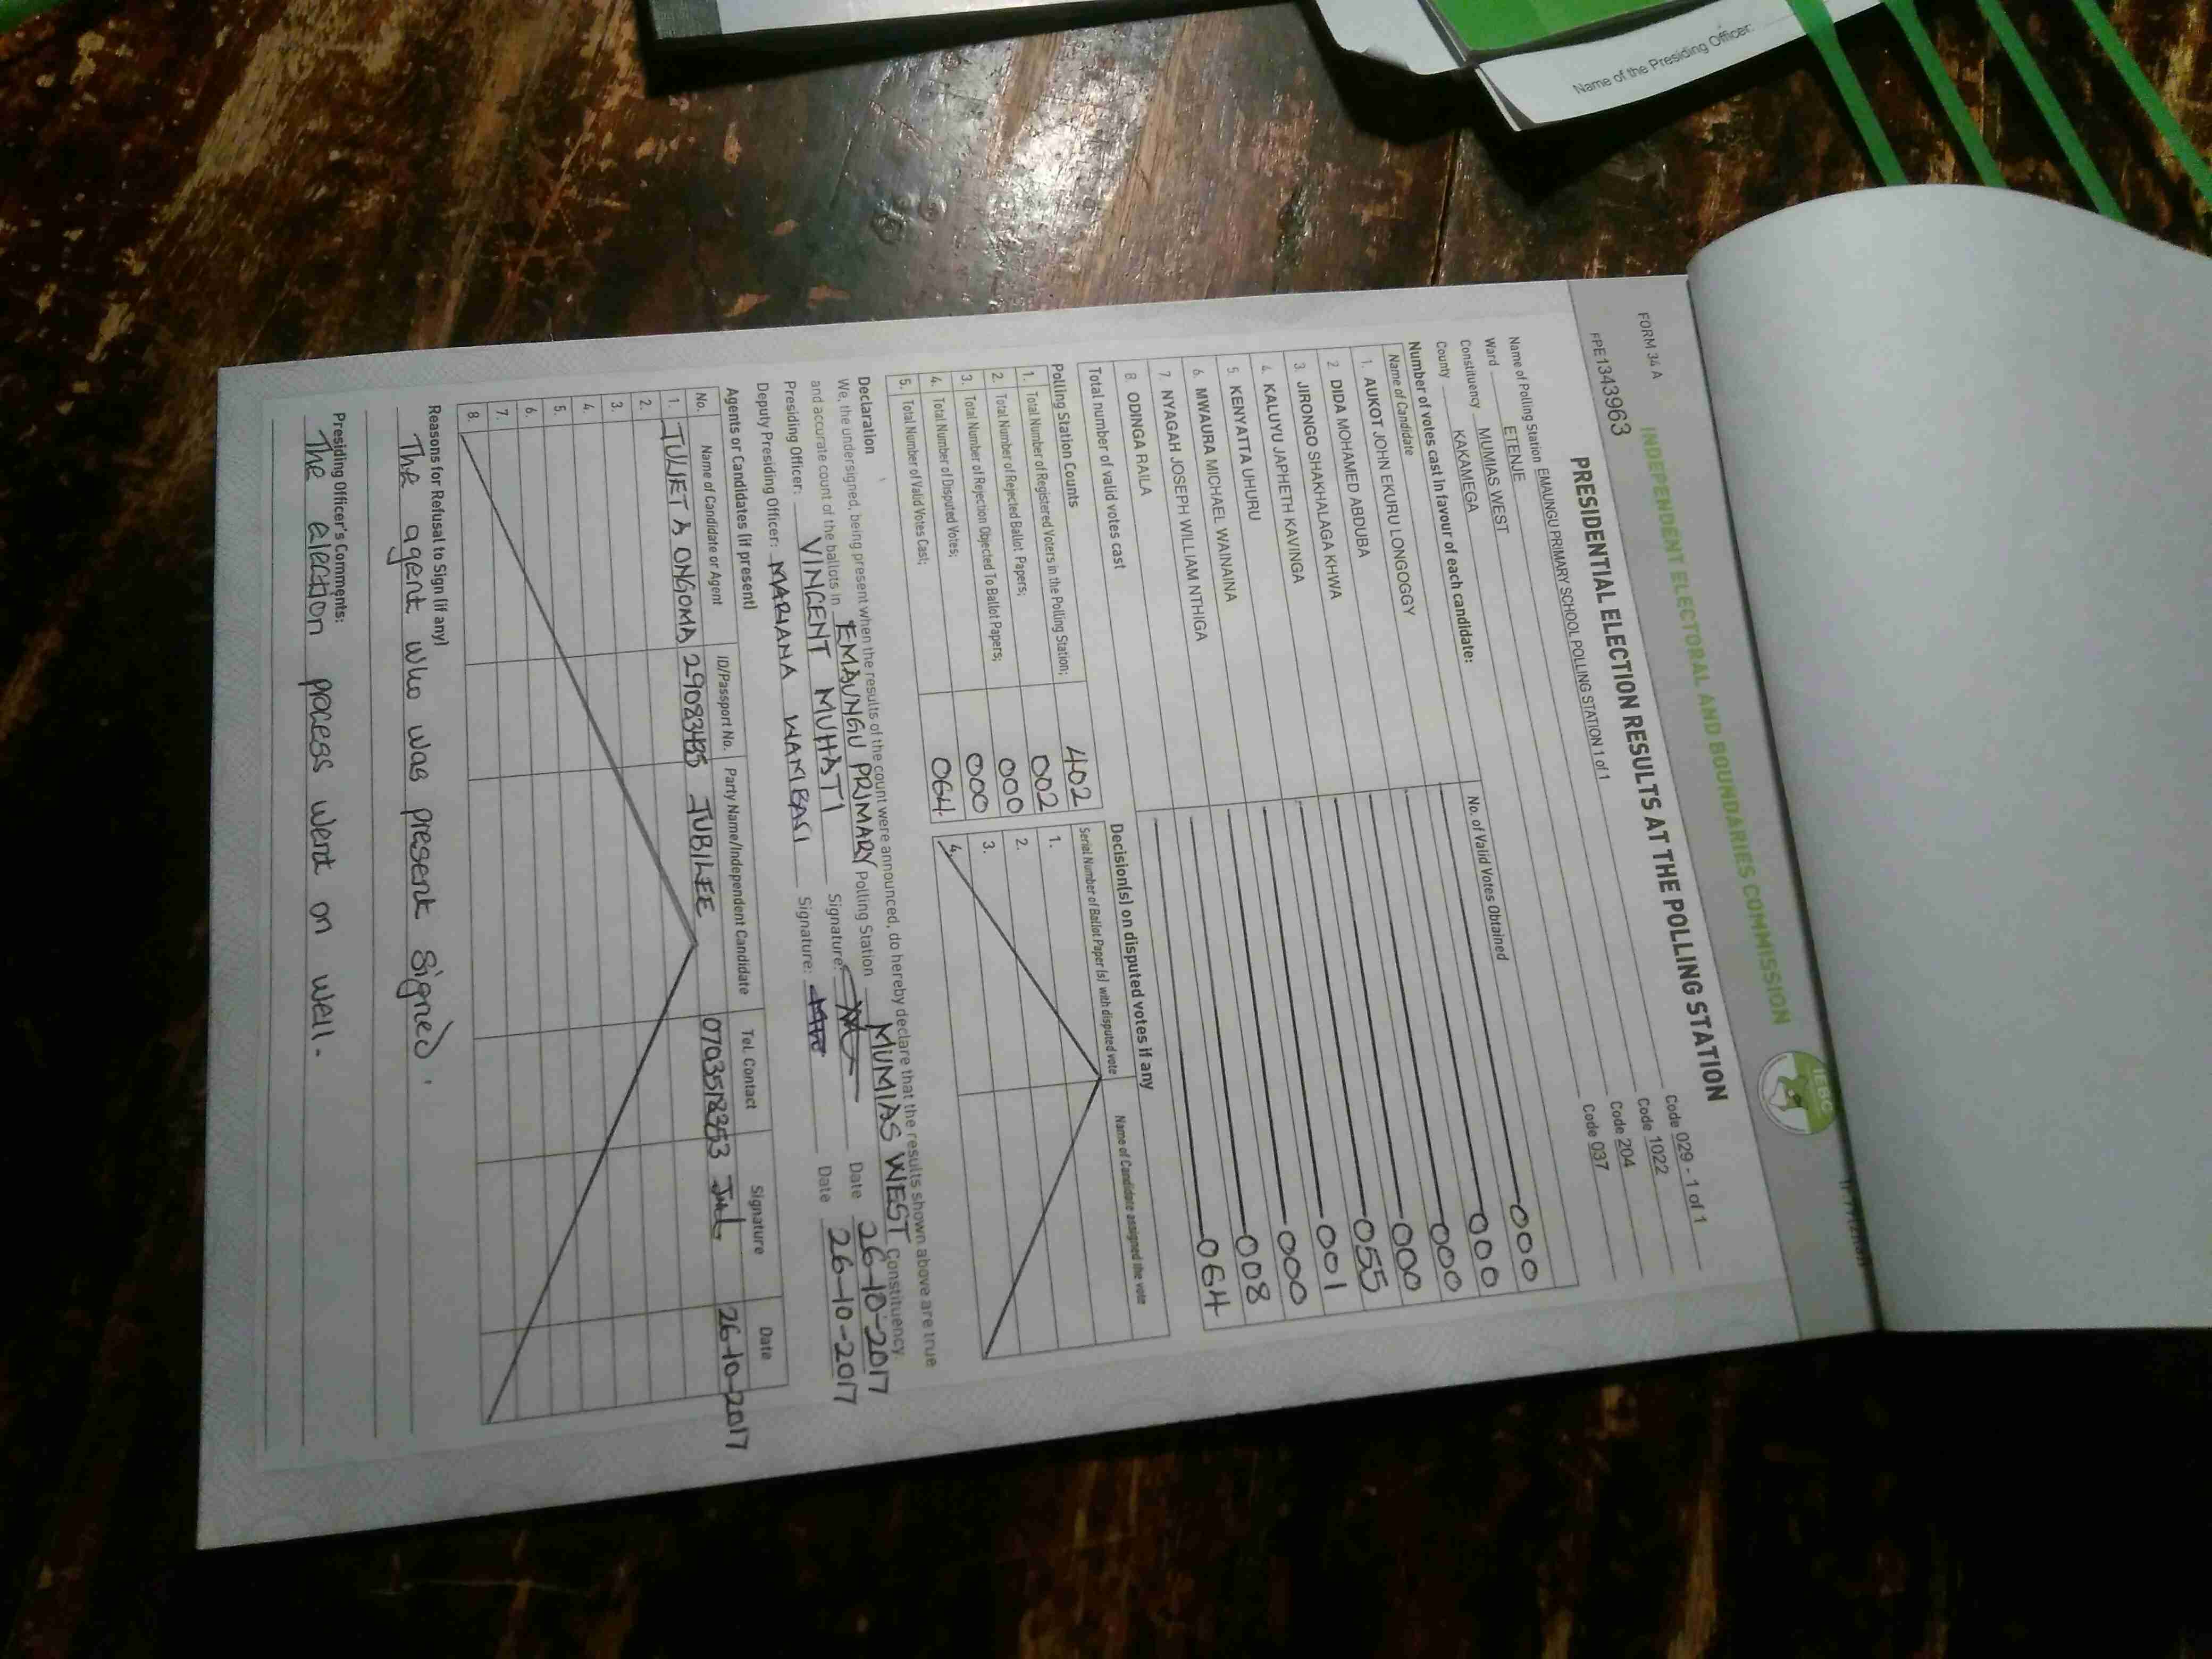 Name of the Presiding Officer:
FORM 34 A
INDEPENDENT ELECTORAL AND BOUNDARIES COMMISSION
IEBC
FPE1343963
PRESIDENTIAL ELECTION RESULTS AT THE POLLING STATION
Name of Polling Station EMAUNGU PRIMARY SCHOOL POLLING STATION 1 of 1 Code 029 - 1 of 1
Ward ETENJE Code 1022
Constituency MUMIAS WEST Code 204
County KAKAMEGA Code 037
Number of votes cast in favour of each candidate:
Name of Candidate No. of Valid Votes Obtained
1. AUKOT JOHN EKURU LONGOGGY 000
2 DIDA MOHAMED ABDUBA 000
3. JIRONGO SHAKHALAGA KHWA 000
4. KALUYU JAPHETH KAVINGA 000
5. KENYATTA UHURU 055
6. MWAURA MICHAEL WAINAINA 001
7. NYAGAH JOSEPH WILLIAM NTHIGA 000
8. ODINGA RAILA 008
Total number of valid votes cast 064
Polling Station Counts
1. Total Number of Registered Voters in the Polling Station; 402
2. Total Number of Rejected Ballot Papers; 002
3. Total Number of Rejection Objected To Ballot Papers; 000
4. Total Number of Disputed Votes; 000
5. Total Number of Valid Votes Cast; 064
Decision(s) on disputed votes if any
Serial Number of Ballot Paper (s) with disputed vote Name of Candidate assigned the vote
1.
2.
3.
4.
Declaration
We, the undersigned, being present when the results of the count were announced, do hereby declare that the results shown above are true
and accurate count of the ballots in EMAUNGU PRIMARY Polling Station MUMIAS WEST Constituency.
Presiding Officer: VINCENT MUHATI Signature: Date 26-10-2017
Deputy Presiding Officer: MARIANA WAMBASI Signature: Date 26-10-2017
Agents or Candidates (if present)
No. Name of Candidate or Agent ID/Passport No. Party Name/Independent Candidate Tel. Contact Signature Date
1. JULIET A ONGOMA 29083485 JUBILEE 0703518353 26-10-2017
2.
3.
4.
5.
6.
7.
8.
Reasons for Refusal to Sign (if any)
The agent who was present signed.
Presiding Officer's Comments:
The election process went on well.